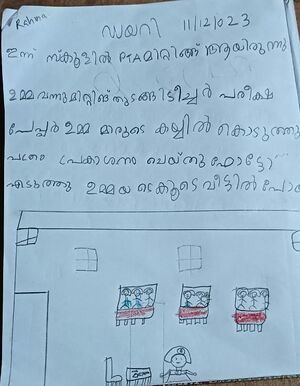 Rahna
ഡയറി 11/12/023
ഇന്ന് സ്കൂളിൽ PTA മിറ്റിങ്ങ് ആയിരുന്നു
ഉമ്മ വന്നു മിറ്റിങ്ങ് തുടങ്ങി ടീച്ചർ പരീക്ഷ
പേപ്പർ ഉമ്മ മാരുടെ കയ്യിൽ കൊടുത്തു
പ്രകാശനം ചെയ്തു ഫോട്ടോ
എടുത്തു ഉമ്മയുടെ കൂടെ വീട്ടിൽ പോയി